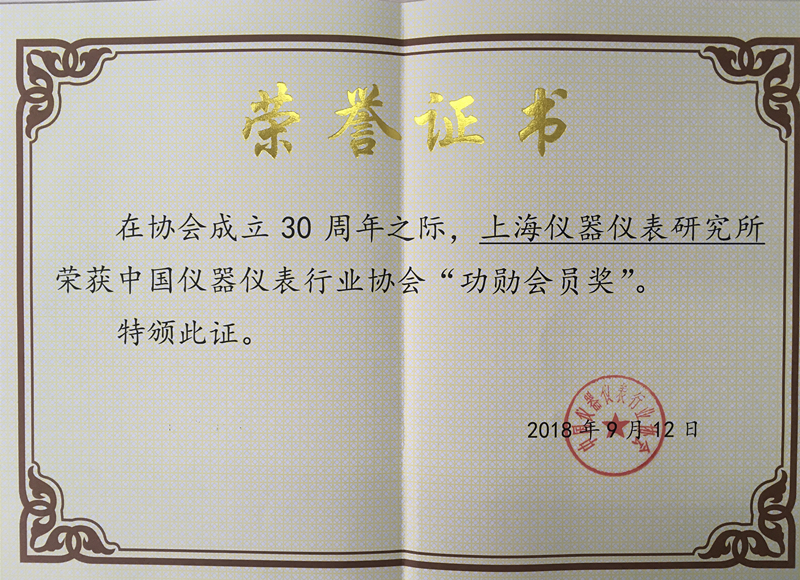 荣誉证书
在协会成立 30 周年之际，上海仪器仪表研究所
荣获中国仪器仪表行业协会“功勋会员奖”。
特颁此证。
中国仪器仪表行业协会
2018 年 9 月 12 日